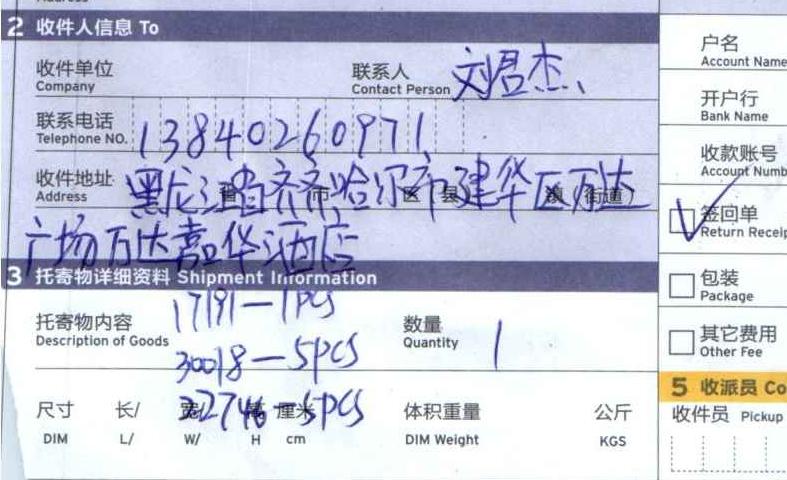 2 收件人信息 To
收件单位
Company
联系人
Contact Person 刘君杰
联系电话
Telephone NO. 13840260971
收件地址
Address
省 市 区 县 镇 街道
黑龙江省齐齐哈尔市建华区万达
广场万达嘉华酒店
3 托寄物详细资料 Shipment Information
托寄物内容
Description of Goods
17191-1pcs
30018-5pcs
22746-5pcs
数量
Quantity 1
尺寸 长/ 宽/ 高 厘米
DIM L/ W/ H cm
体积重量 公斤
DIM Weight KGS
户名
Account Name
开户行
Bank Name
收款账号
Account Numb
签回单
Return Receip
包装
Package
其它费用
Other Fee
5 收派员 Co
收件员 Pickup